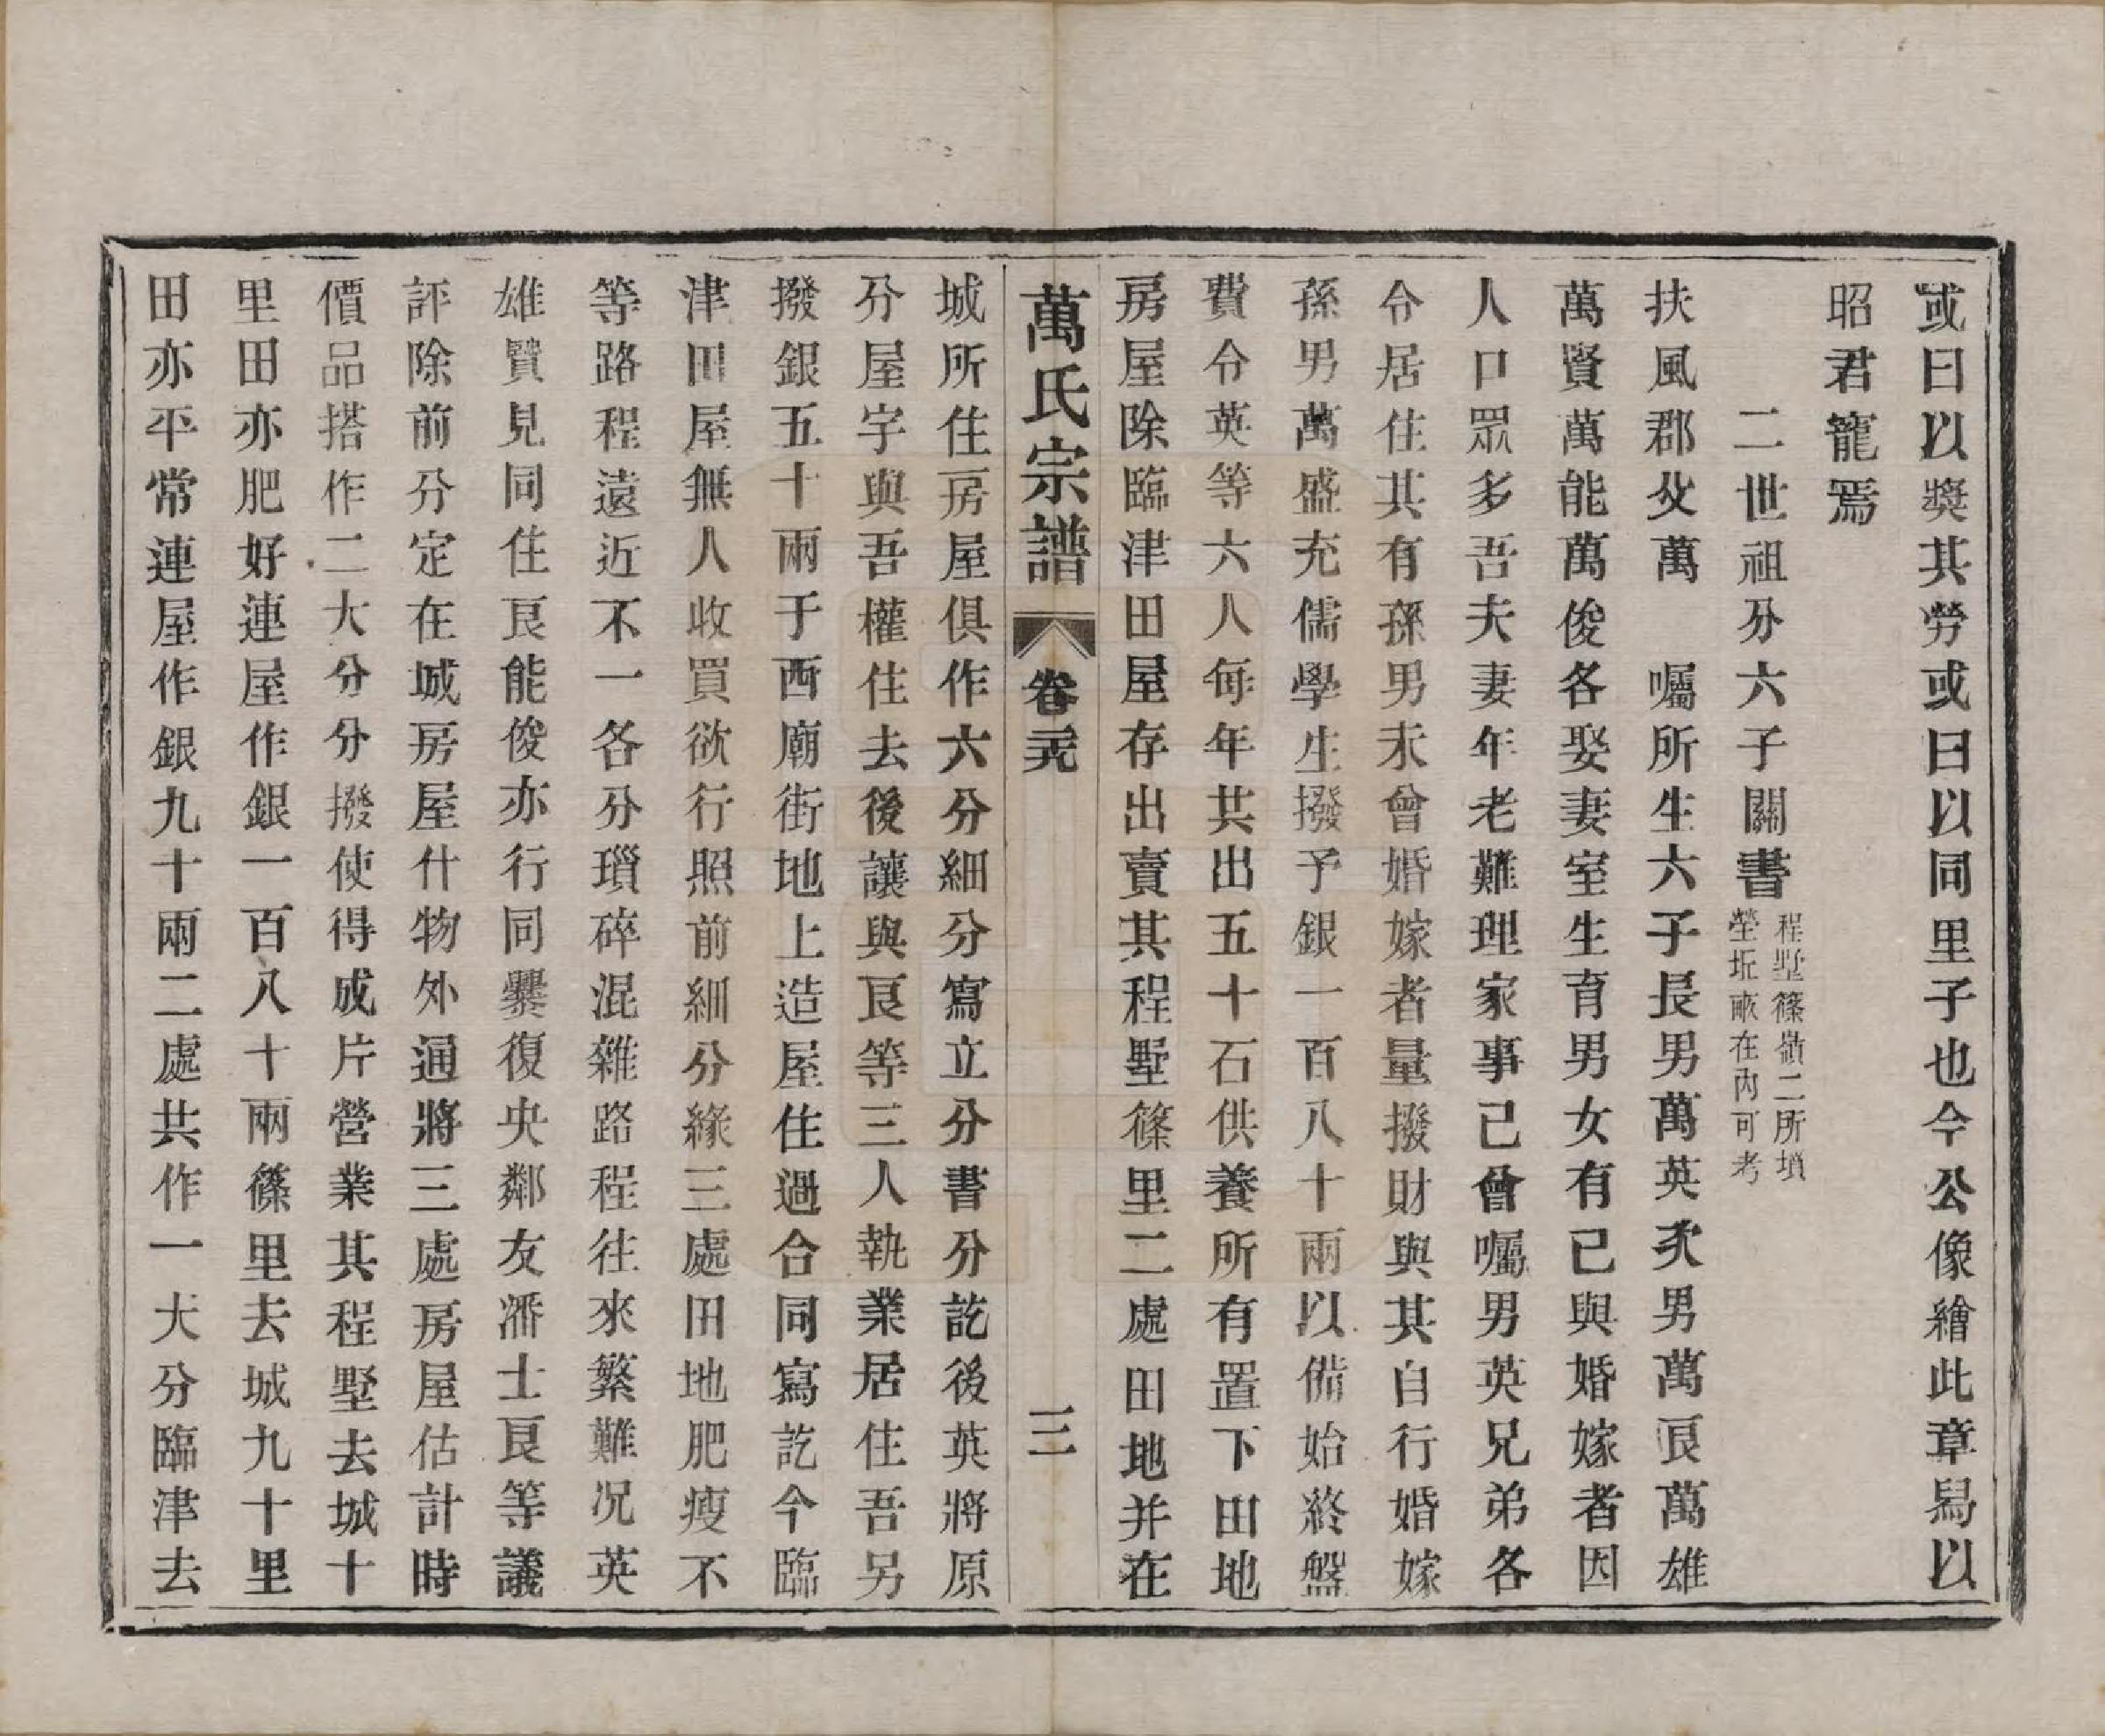 或曰以獎其勞或曰以同里子也今公像繪此章舄以
昭君寵焉
二世祖分六子關書
程墅篠嶺二所墳
塋坵畝在內可考
扶風郡父萬　囑所生六子長男萬英次男萬良萬雄
萬賢萬能萬俊各娶妻室生育男女有已與婚嫁者因
人口眾多吾夫妻年老難理家事己會囑男英兄弟各
令居住其有孫男未曾婚嫁者量撥財與其自行婚嫁
孫男萬盛充儒學生撥予銀一百八十兩以備始終盤
費令英等六人每年共出五十石供養所有置下田地
房屋除臨津田屋存出賣其程墅篠里二處田地并在
萬氏宗譜　卷三十九　三
城所住房屋俱作六分細分寫立分書分訖後英將原
分屋字與吾權住去後讓與良等三人執業居住吾另
撥銀五十兩于西廟街地上造屋住過合同寫訖今臨
津田屋無人收買欲行照前細分緣三處田地肥瘦不
等路程遠近不一各分瑣碎混雜路程往來繁難况英
雄賢見同住良能俊亦行同爨復央鄰友潘士良等議
評除前分定在城房屋什物外通將三處房屋估計時
價品搭作二大分分撥使得成片營業其程墅去城十
里田亦肥好連屋作銀一百八十兩篠里去城九十里
田亦平常連屋作銀九十兩二處共作一大分臨津去